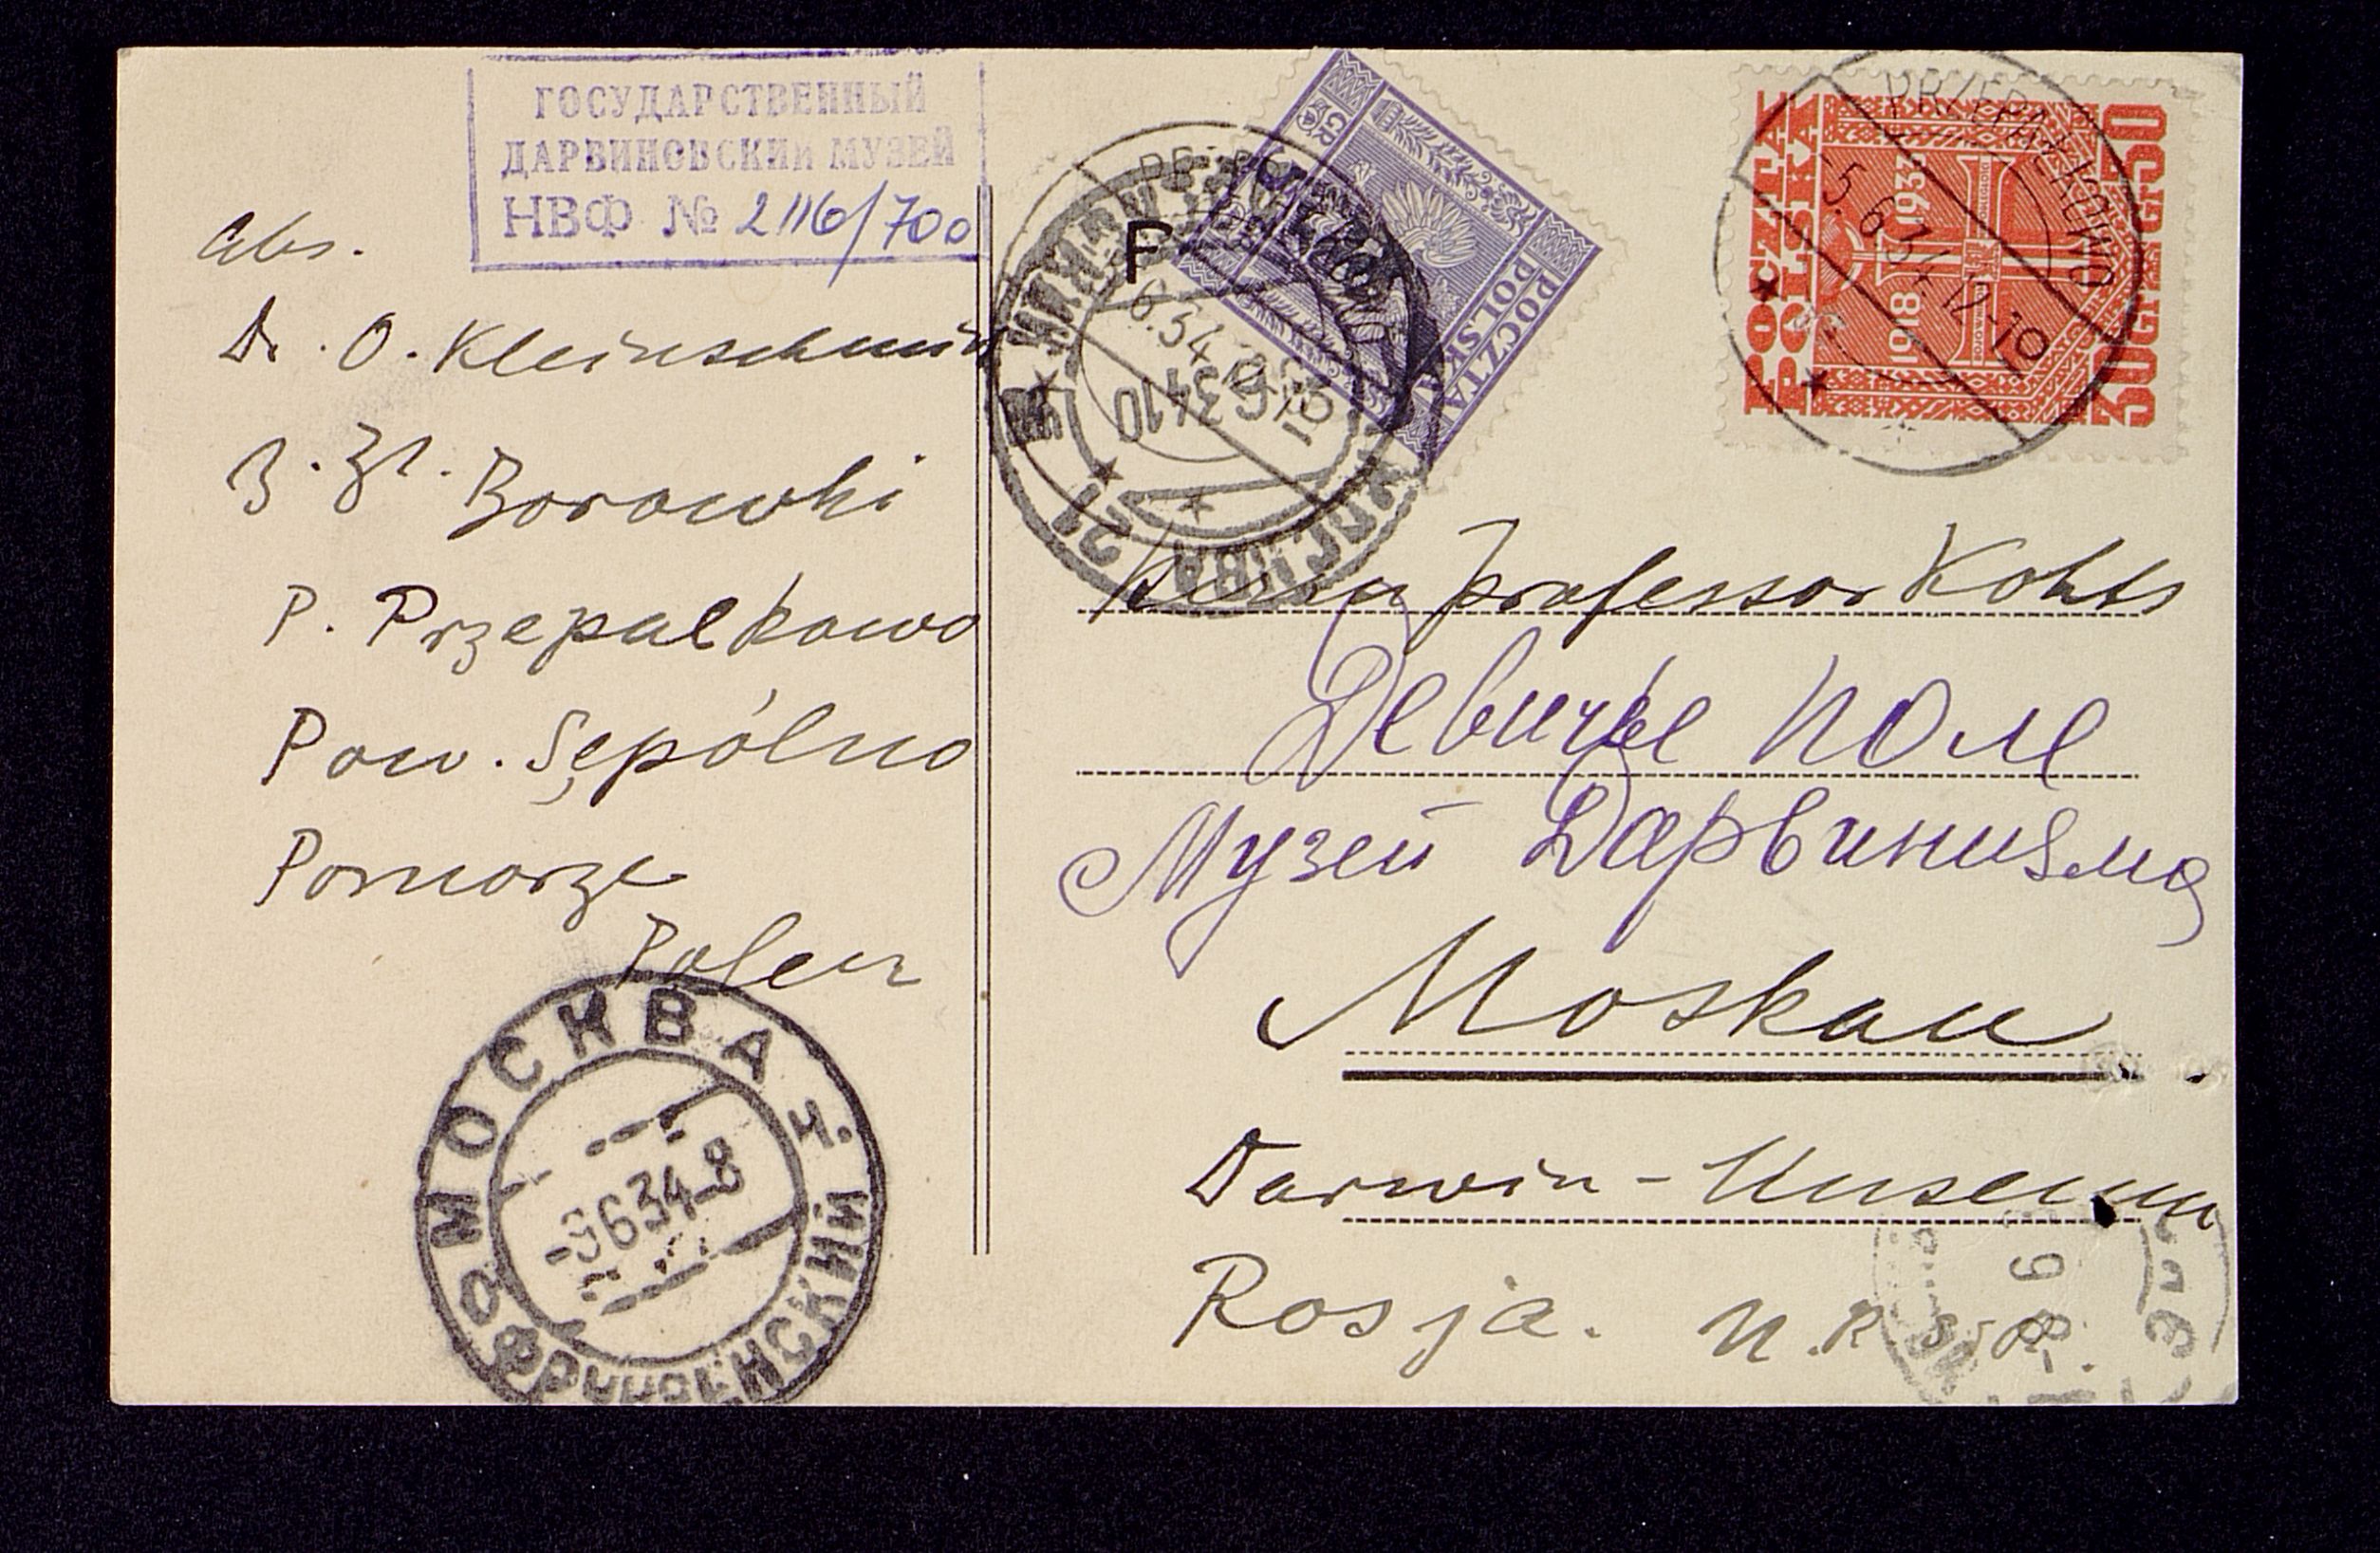 ГОСУДАРСТВЕННЫЙ
ДАРВИНОВСКИЙ МУЗЕЙ
НВФ № 2116/700
Abs.
Dr. O. Kleinschmidt
Borowki
P. Przepałkowo
Pow. Sępólno
Pomorze
Polen
МОСКВА
9634-8
P
GR
POCZTA
POLSKA
МОСКВА
21
6.34.10
POCZTA
POLSKA
1918
1933
30GR
50
PRZEPAŁKOWO
5.6.34.17-10
Herrn Professor Kohts
Девичье Поле
Музей Дарвинизма
Moskau
Darwin-Museum
Rosja.